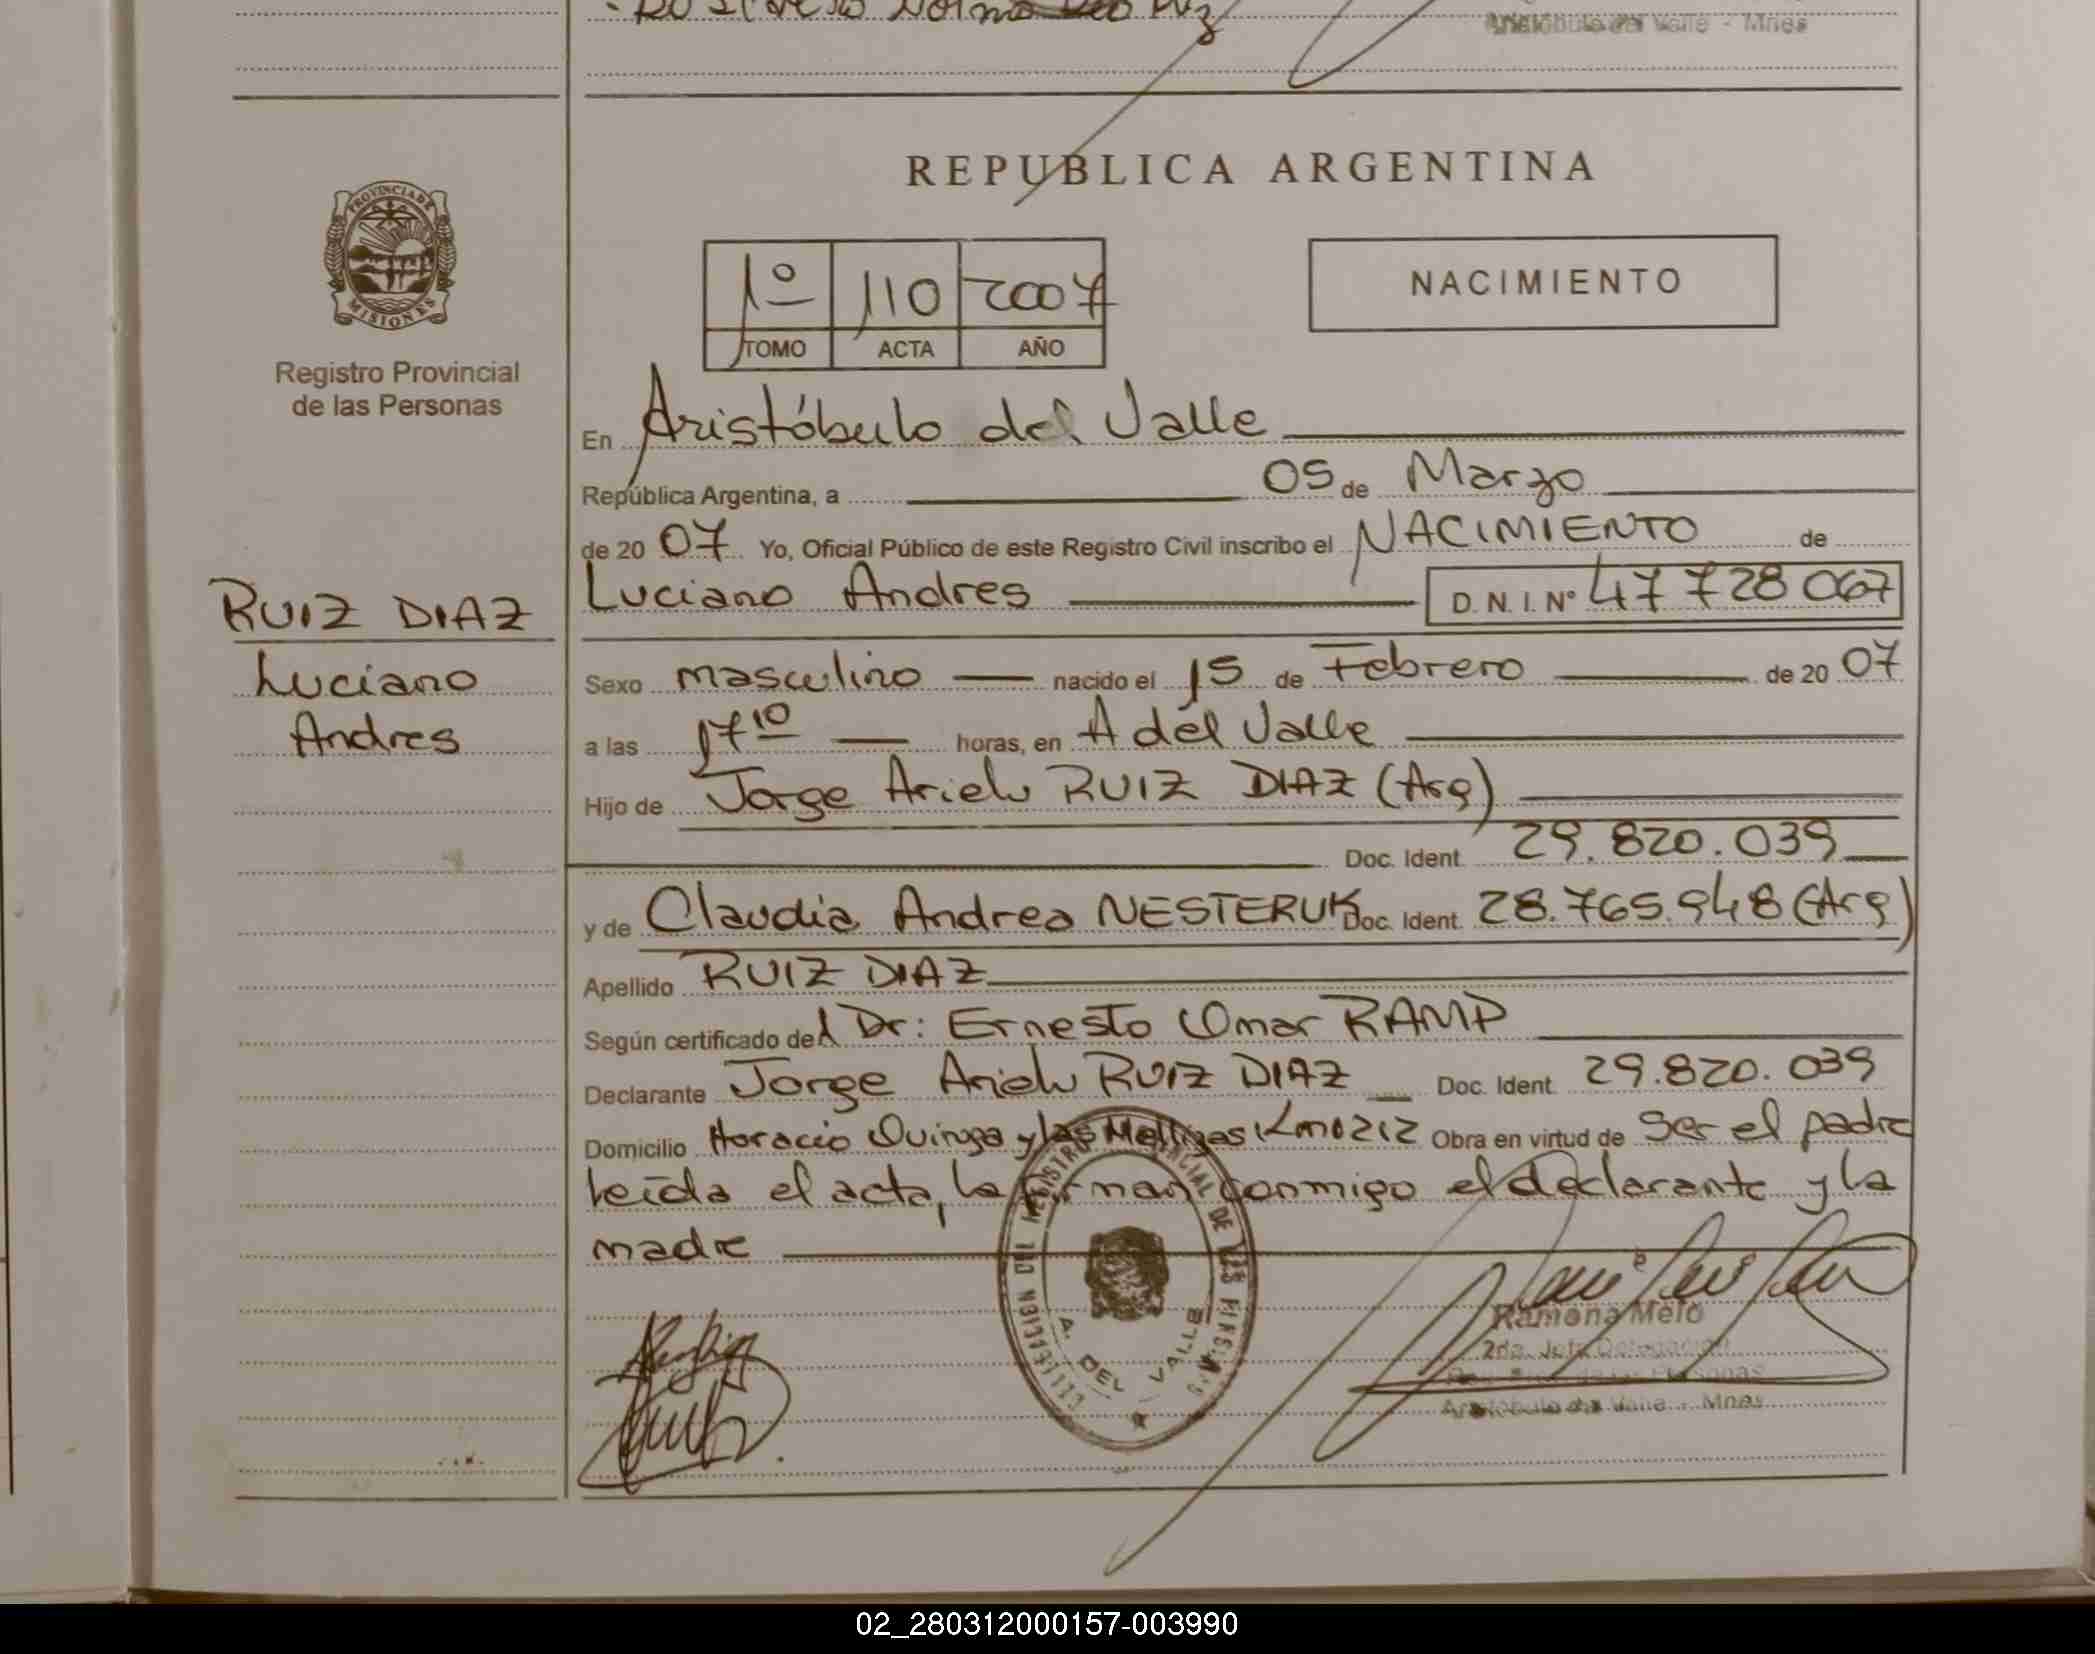 Aristóbulo del Valle - Mnes
REPUBLICA ARGENTINA
PROVINCIA DE
MISIONES
Registro Provincial
de las Personas
1º 110 2007
TOMO ACTA AÑO
NACIMIENTO
En Aristóbulo del Valle
República Argentina, a 05 de Marzo
de 20 07 Yo, Oficial Público de este Registro Civil inscribo el NACIMIENTO de
RUIZ DIAZ
Luciano
Andres
Luciano Andres D. N. I. Nº 47 728 067
Sexo masculino nacido el 15 de Febrero de 20 07
a las 17 10 horas, en A del Valle
Hijo de Jorge Ariel RUIZ DIAZ (Arg)
Doc. Ident. 29.820.039
y de Claudia Andrea NESTERUK Doc. Ident. 28.765.948 (Arg)
Apellido RUIZ DIAZ
Según certificado del Dr: Ernesto Omar RAMP
Declarante Jorge Ariel RUIZ DIAZ Doc. Ident. 29.820.039
Domicilio Horacio Quiroga y las Mellizas Km 0212 Obra en virtud de ser el padre
leída el acta, la firman conmigo el declarante y la
madre
DEL REGISTRO PROVINCIAL DE LAS PERSONAS
A. DEL VALLE
Ramona Melo
2da. Jefa Delegación
Aristóbulo del Valle - Mnes.
02_280312000157-003990